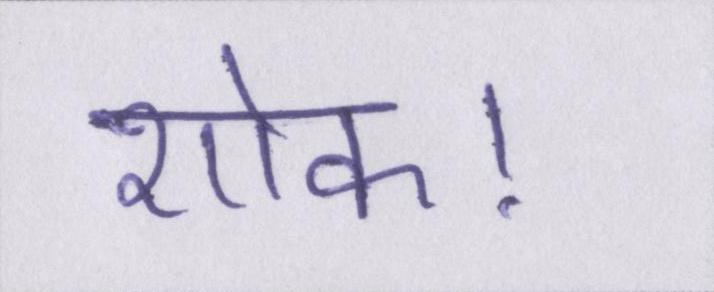 शोक!